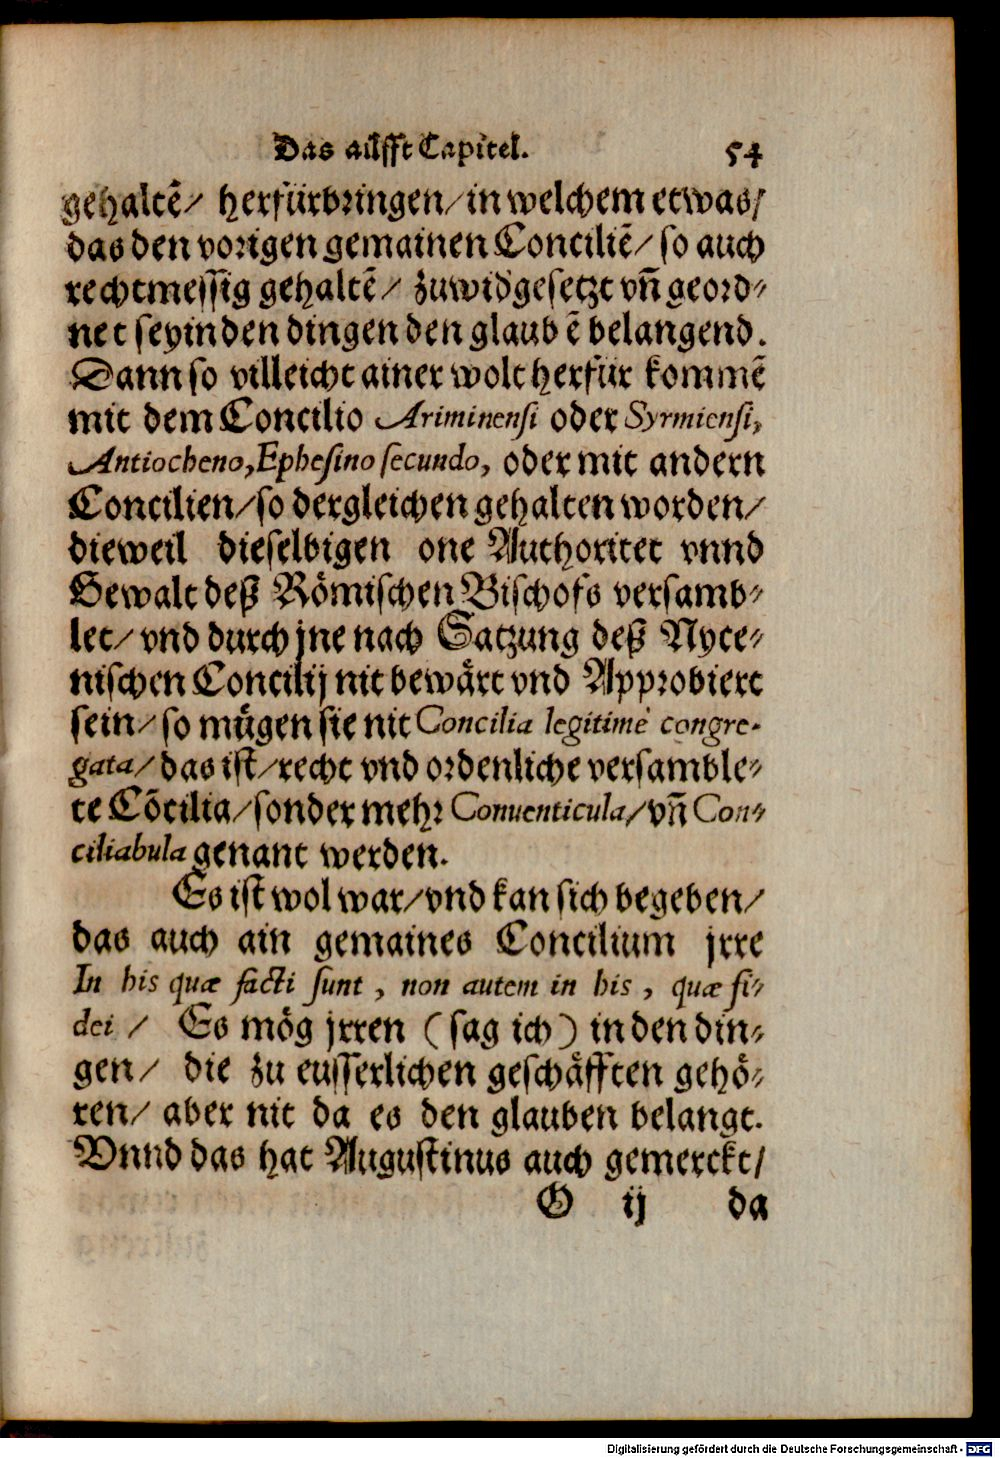 Das ailfft Capitel. 54
gehaltē/ herfürbringen/ in welchem etwas/
das den vorigen gemainen Conciliē/ so auch
rechtmessig gehaltē/ zuwid'gesetzt vn̄ geord⸗
net sey in den dingen den glaubē belangend.
Dann so villeicht ainer wolt herfür kommē
mit dem Concilio Ariminensi oder Syrmiensi,
Antiocheno, Ephesino secundo, oder mit andern
Concilien/ so dergleichen gehalten worden/
dieweil dieselbigen one Authoritet vnnd
Gewalt deß Römischen Bischofs versamb⸗
let/ vnd durch jne nach Satzung deß Nyce⸗
nischen Concilij nit bewärt vnd Approbiert
sein/ so mügen sie nit Concilia legitimè congre⸗
gata/ das ist/ recht vnd ordenliche versamble⸗
te Cōcilia/ sonder mehr Conuenticula/ vn̄ Con⸗
ciliabula genant werden.
Es ist wol war/ vnd kan sich begeben/
das auch ain gemaines Concilium jrre
In his quæ facti sunt, non autem in his, quæ fi⸗
dei/ Es mög jrren (sag ich) in den din⸗
gen/ die zu eusserlichen geschäfften gehö⸗
ren/ aber nit da es den glauben belangt.
Vnnd das hat Augustinus auch gemerckt/
G ij da
Digitalisierung gefördert durch die Deutsche Forschungsgemeinschaft - DFG